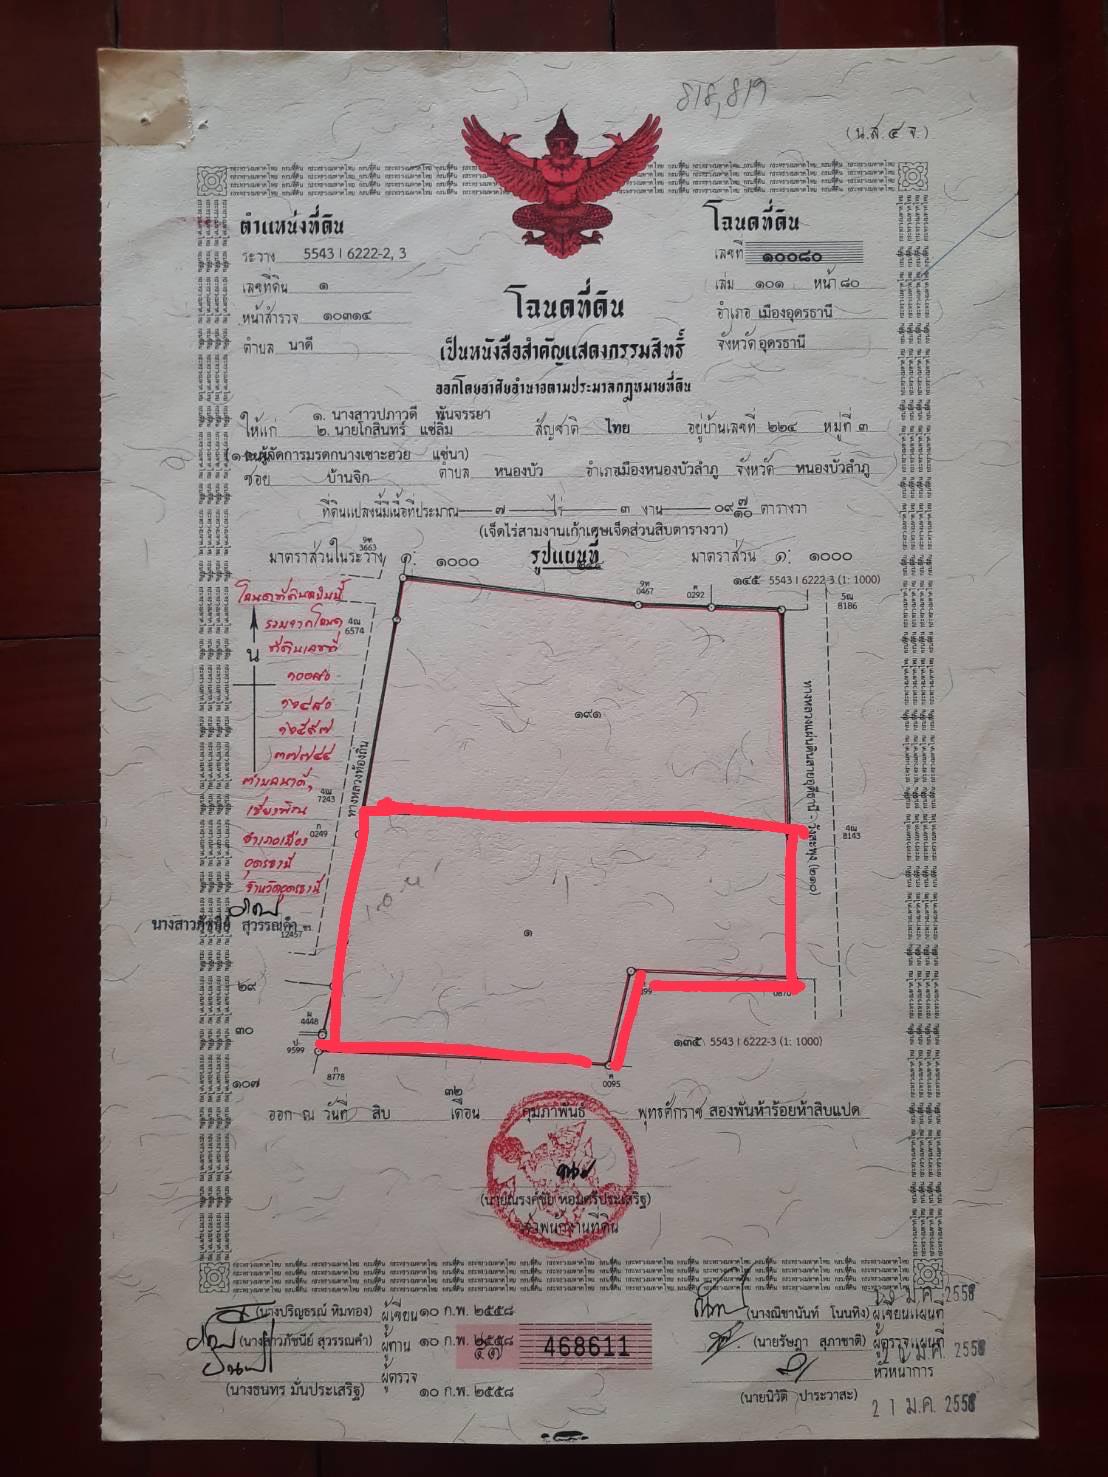 818, 819
(น.ส. ๔ จ.)
ตำแหน่งที่ดิน
ระวาง 5543 I 6222-2, 3
เลขที่ดิน ๑
หน้าสำรวจ ๑๐๓๑๔
ตำบล นาดี
โฉนดที่ดิน
เลขที่ ๑๐๐๘๐
เล่ม ๑๐๑ หน้า ๘๐
อำเภอ เมืองอุดรธานี
จังหวัด อุดรธานี
โฉนดที่ดิน
เป็นหนังสือสำคัญแสดงกรรมสิทธิ์
ออกโดยอาศัยอำนาจตามประมวลกฎหมายที่ดิน
๑. นางสาวปภาวดี พันจรรยา
ให้แก่ ๒. นายโกสินทร์ แซ่ลิ้ม สัญชาติ ไทย อยู่บ้านเลขที่ ๒๒๔ หมู่ที่ ๓
ผู้จัดการมรดกนางเซาะฮวย แซ่นา)
ซอย บ้านจิก ตำบล หนองบัว อำเภอเมืองหนองบัวลำภู จังหวัด หนองบัวลำภู
ที่ดินแปลงนี้มีเนื้อที่ประมาณ ๗ ไร่ ๓ งาน ๐๙ ๗/๑๐ ตารางวา
(เจ็ดไร่สามงานเก้าเศษเจ็ดส่วนสิบตารางวา)
มาตราส่วนในระวาง ๑: ๑๐๐๐ รูปแผนที่ มาตราส่วน ๑: ๑๐๐๐
3663
๑๔๕ 5543 I 6222-3 (1: 1000)
0467
0292
8186
6574
โฉนดที่ดินฉบับนี้
รวมจากโฉนด
ที่ดินเลขที่
น
๑๐๐๘๐
๓๗๗๔๔
ตำบลนาดี,
เชียงพิณ
อำเภอเมือง
อุดรธานี
จังหวัดอุดรธานี
นางสาวภัชนีย์ สุวรรณคำ
๑๙๑
ทางหลวงท้องถิ่น
ทางหลวงแผ่นดินสายอุดรธานี - วังสะพุง (๒๑๐)
7243
0249
8143
12457
๑
๒๙
๓๐
4448
9599
๑๐๗
8778
0095
0870
๑๓๕ 5543 I 6222-3 (1: 1000)
๓๒
ออก ณ วันที่ สิบ เดือน กุมภาพันธ์ พุทธศักราช สองพันห้าร้อยห้าสิบแปด
(นายณรงค์ชัย หอมศรีประเสริฐ)
เจ้าพนักงานที่ดิน
(นางปริญธรณ์ ทิมทอง) ผู้เขียน ๑๐ ก.พ. ๒๕๕๘
(นางสาวภัชนีย์ สุวรรณคำ) ผู้ทาน ๑๐ ก.พ. ๒๕๕๘
ผู้ตรวจ
(นางธนทร มั่นประเสริฐ) ๑๐ ก.พ. ๒๕๕๘
๕๓
468611
(นางณิชานันท์ โนนทิง) ผู้เขียนแผนที่
(นายรัษฎา สุภาชาติ) ผู้ตรวจแผนที่
หัวหน้าการ
(นายนิวัติ ปาระวาสะ)
21 ม.ค. 2558